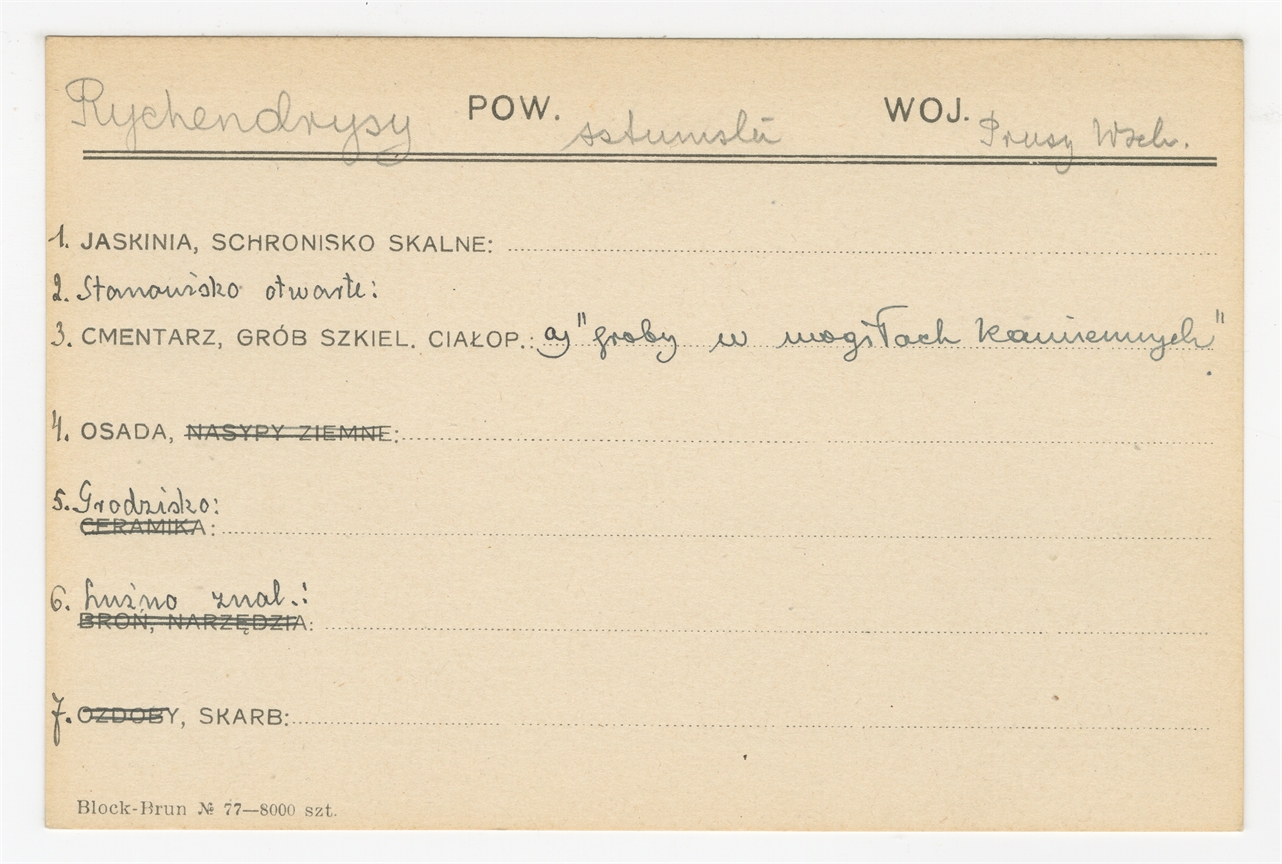 Rychendrysy POW. sztumski WOJ. Prusy Wsch.
1. JASKINIA, SCHRONISKO SKALNE:
2. Stanowisko otwarte:
3. CMENTARZ, GRÓB SZKIEL. CIAŁOP.: a) "groby w mogiłach kamiennych".
4. OSADA, NASYPY ZIEMNE:
5. Grodzisko:
CERAMIKA:
6. Luźno znal.:
BROŃ, NARZĘDZIA:
7. OZDOBY, SKARB:
Block-Brun № 77—8000 szt.